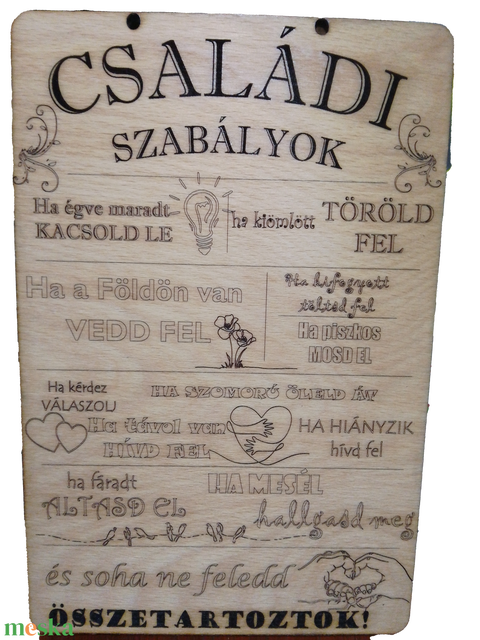 CSALÁDI
SZABÁLYOK
Ha égve maradt
KACSOLD LE
ha kiömlött
TÖRÖLD
FEL
Ha a Földön van
VEDD FEL
Ha kifogyott
töltsd fel
Ha piszkos
MOSD EL
Ha kérdez
VÁLASZOLJ
HA SZOMORÚ ÖLELD ÁT
Ha távol van
HÍVD FEL
HA HIÁNYZIK
hívd fel
ha fáradt
ALTASD EL
HA MESÉL
hallgasd meg
és soha ne feledd
ÖSSZETARTOZTOK!
meska